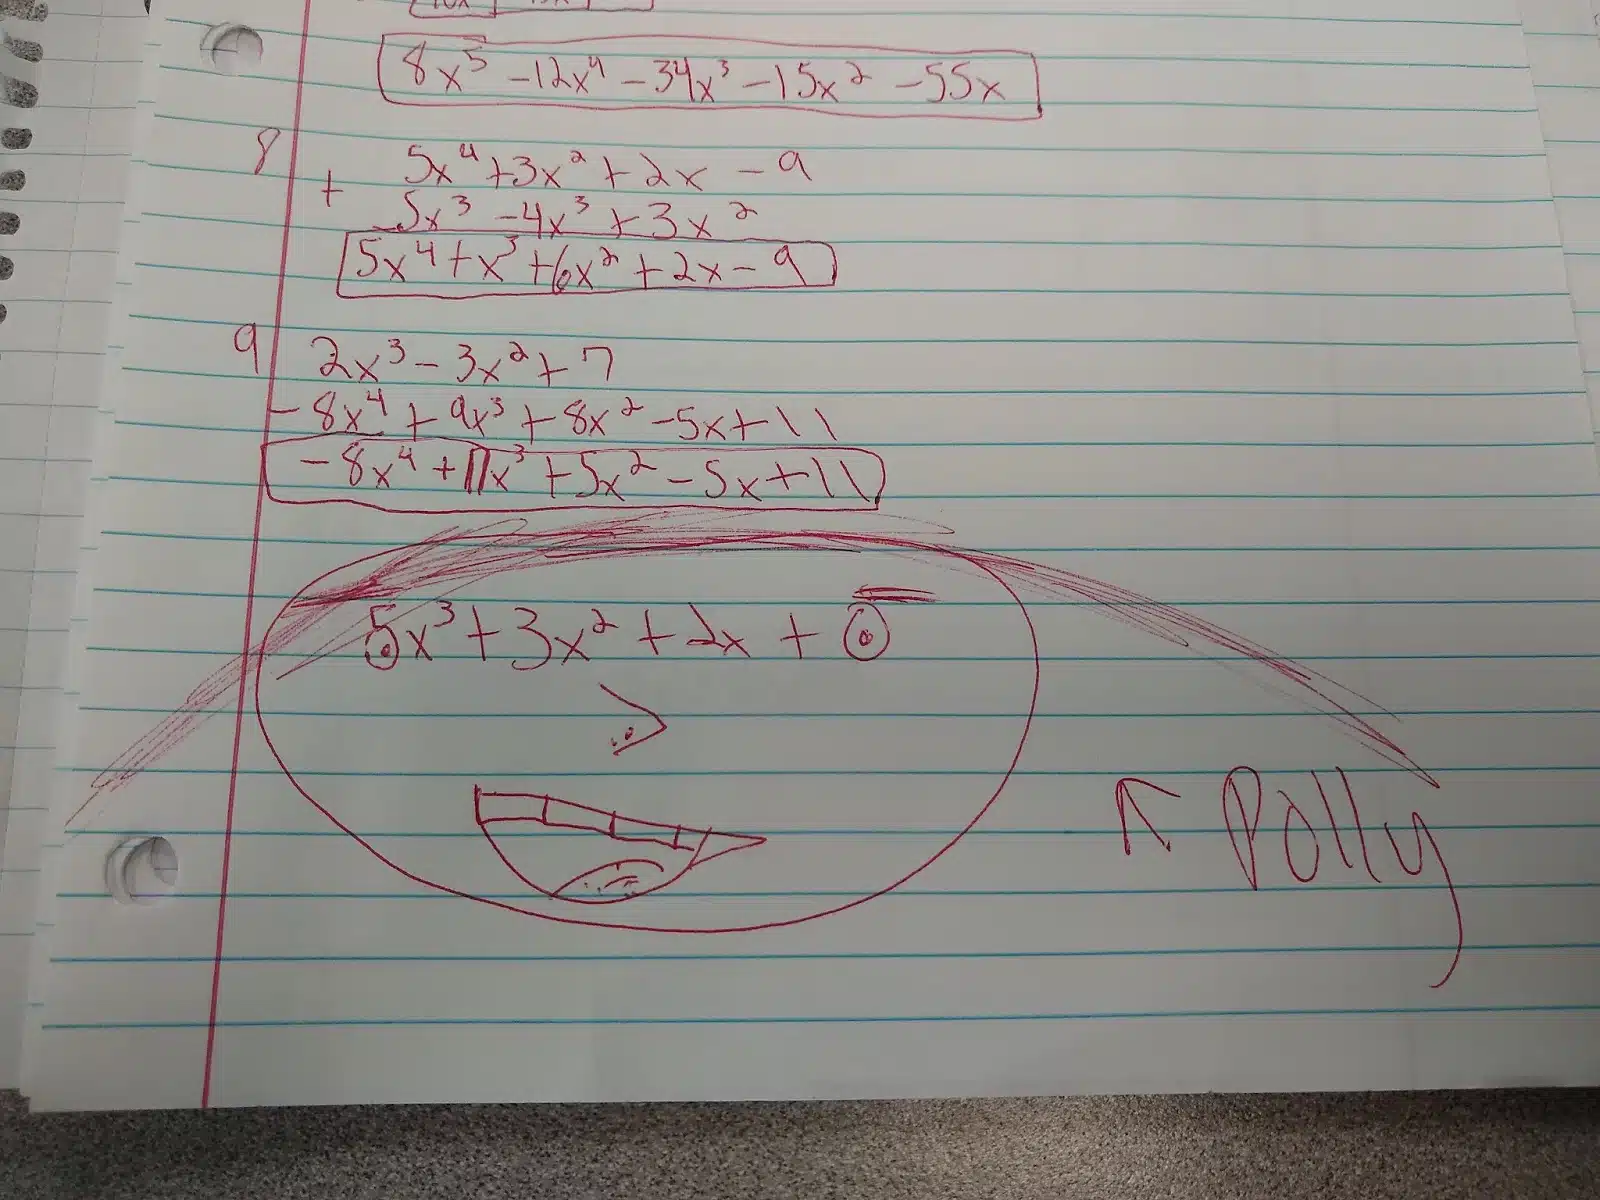 8x⁵ -12x⁴ - 34x³ - 15x² - 55x
8
5x⁴ + 3x² + 2x - 9
+ 5x³ - 4x³ + 3x²
5x⁴ + x³ + 6x² + 2x - 9
9
2x³ - 3x² + 7
- 8x⁴ + 9x³ + 8x² - 5x + 11
- 8x⁴ + 11x³ + 5x² - 5x + 11
5x³ + 3x² + 2x + 0
Polly